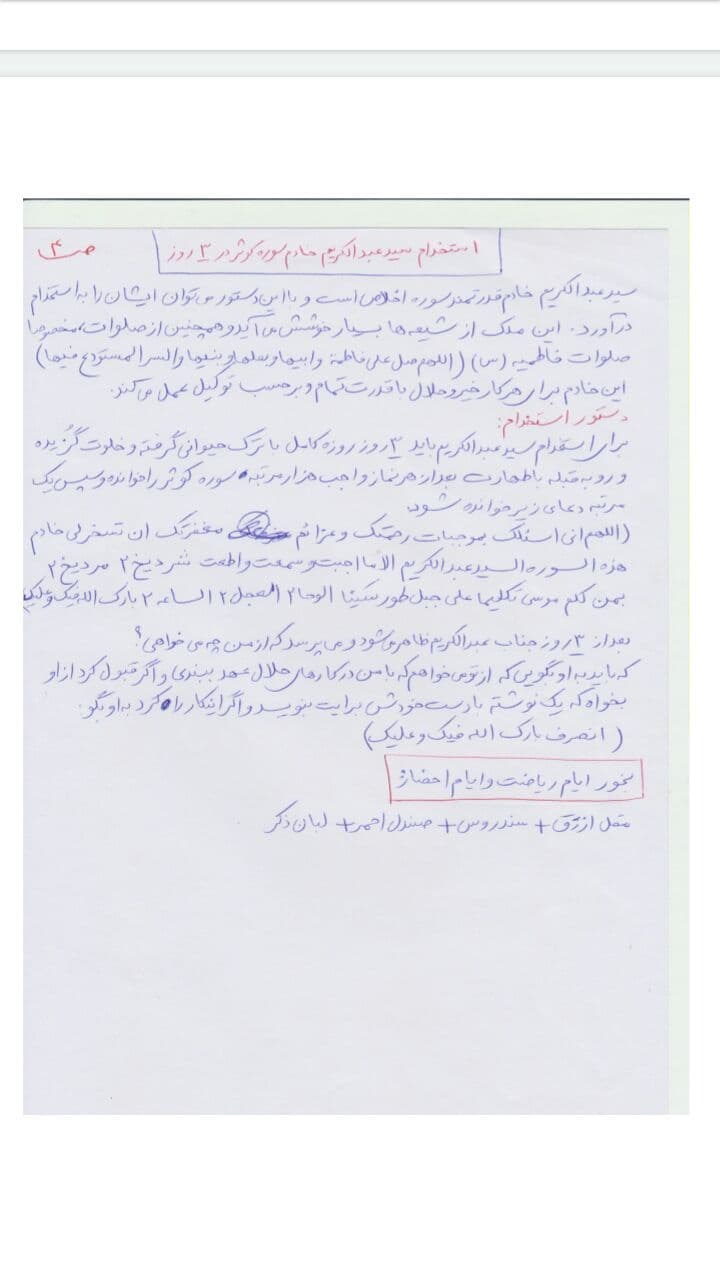 استخدام سید عبدالکریم خادم سوره کوثر در ۳ روز
ص ۴
سید عبدالکریم خادم قدرتمند سوره اخلاص است و با این دستور می توان ایشان را به استخدام
درآورد. این ملک از شیعه ها بسیار خوشش می آید و همچنین از صلوات، مخصوصا
صلوات فاطمیه (س) (اللهم صل علی فاطمة و ابیها و بعلها و بنیها و السر المستودع فیها)
این خادم برای هر کار خیر و حلال با قدرت تمام و بر حسب توکیل عمل می کند.
دستور استخدام:
برای استخدام سید عبدالکریم باید ۳ روز روزه کامل با ترک حیوانی گرفته و خلوت گزیده
و رو به قبله با طهارت بعد از هر نماز واجب هزار مرتبه سوره کوثر را خوانده و سپس یک
مرتبه دعای زیر خوانده شود.
(اللهم انی اسئلک بموجبات رحمتک و عزائم مغفرتک ان تسخر لی خادم
هذه السوره السید عبدالکریم الا ما اجبت و سمعت و اطعت شردیخ ۲ مردیخ ۲
بمن کلم موسی تکلیما علی جبل طور سکینا الوحا ۲ العجل ۲ الساعه ۲ بارک الله فیک و علیک)
بعد از ۳ روز جناب عبدالکریم ظاهر می شود و می پرسد که از من چه می خواهی؟
که باید به او بگویی که از تو می خواهم که با من در کارهای حلال عهد ببندی و اگر قبول کرد از او
بخواه که یک نوشته با دست خودش برایت بنویسد و اگر اینکار را کرد به او بگو:
(انصرف بارک الله فیک و علیک)
بخور ایام ریاضت و ایام احضار:
مقل ازرق + سندروس + صندل احمر + لبان ذکر